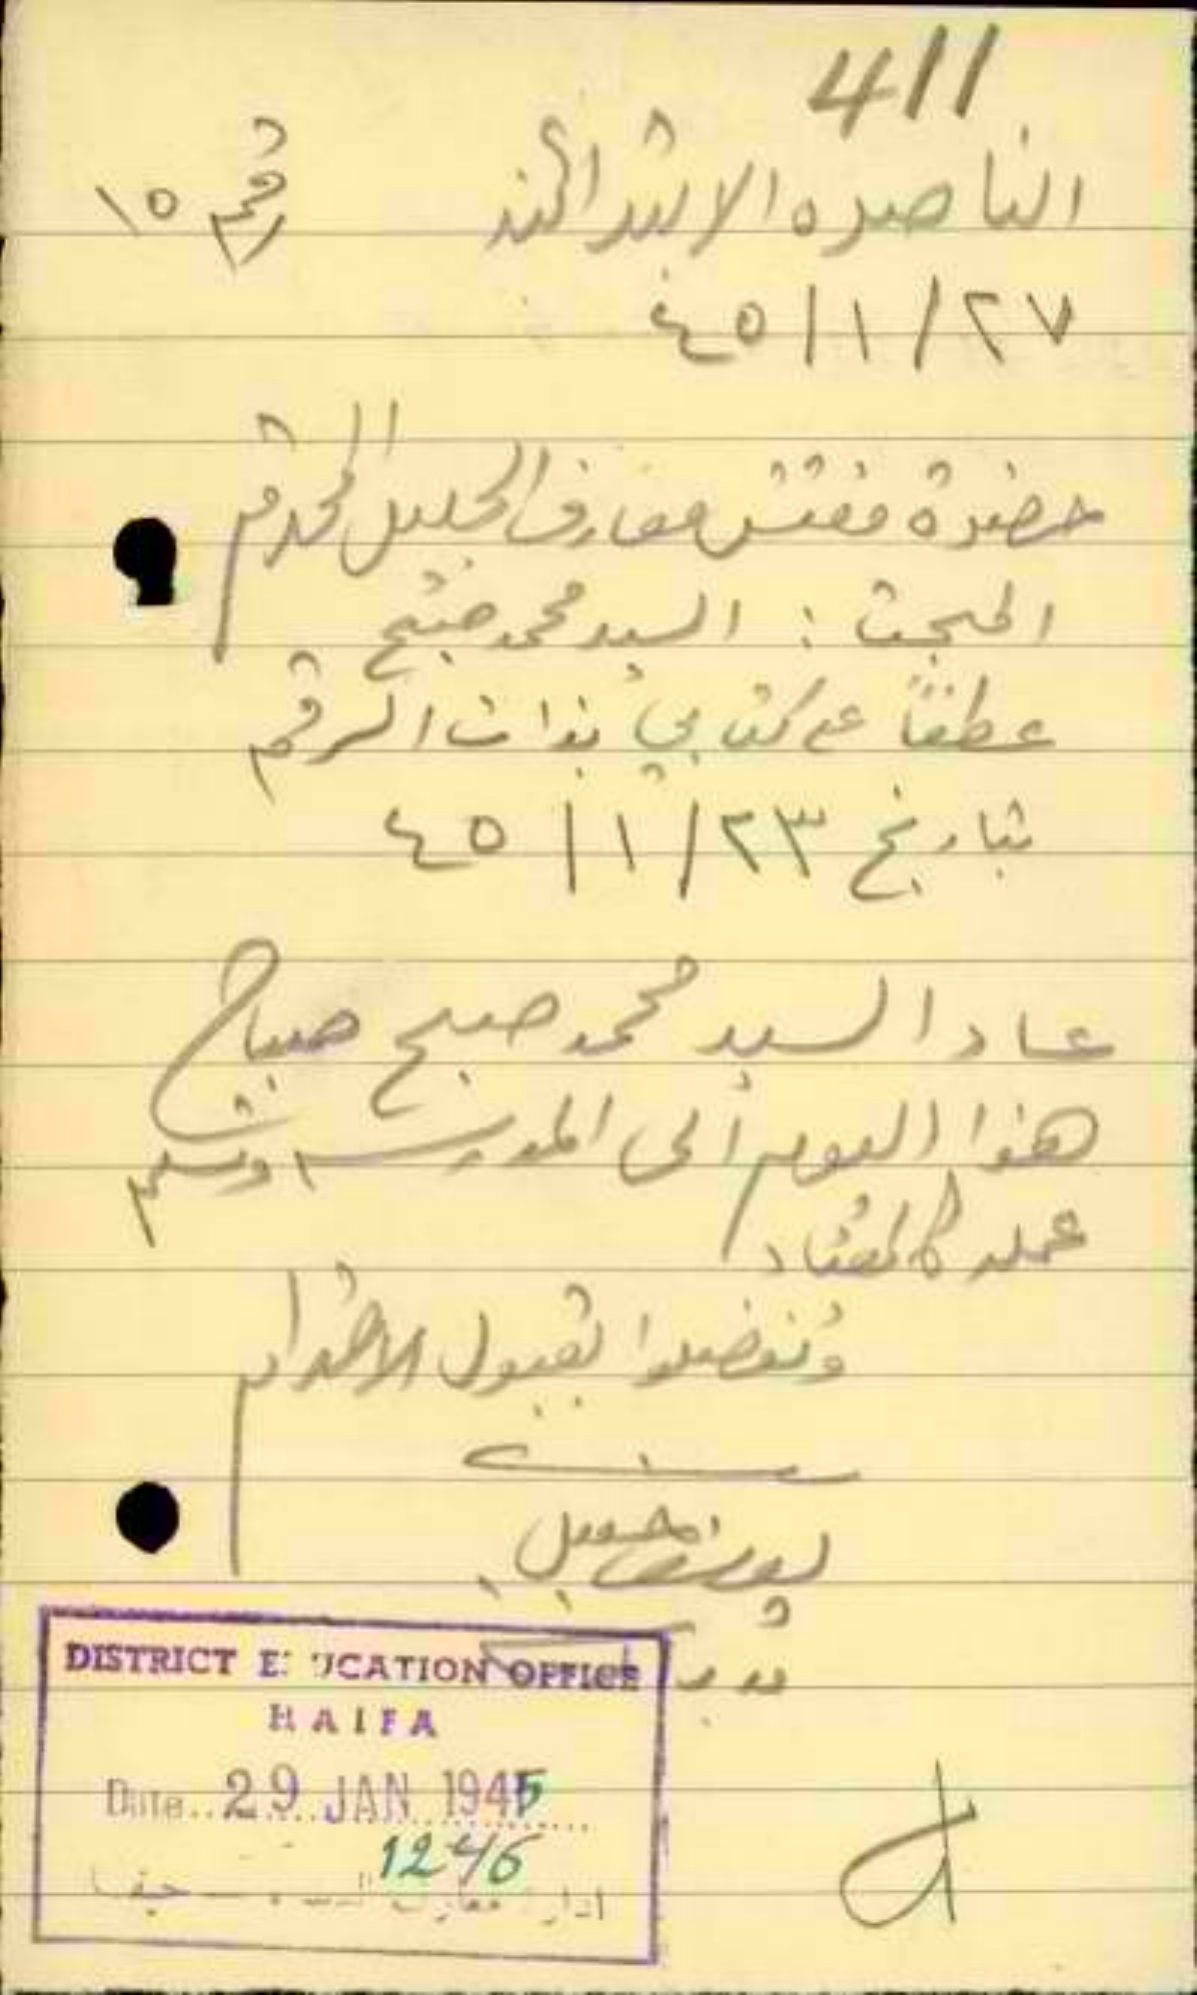 411
الناصره الابتدائية
رقم ١٥
٢٧/١/٤٥
حضرة مفتش معارف الجليل المحترم
المبحث : السيد محمد صبح
عطفاً على كتابي بذات الرقم
بتاريخ ٢٣/١/٤٥
عاد السيد محمد صبح صباح
هذا اليوم الى المدرسة وتسلم
عمله كالمعتاد
وتفضلوا بقبول الاحترام
مدير
DISTRICT E UCATION OFFICE
HAIFA
Date.. 29 JAN 1945
1246
معارف حيفا